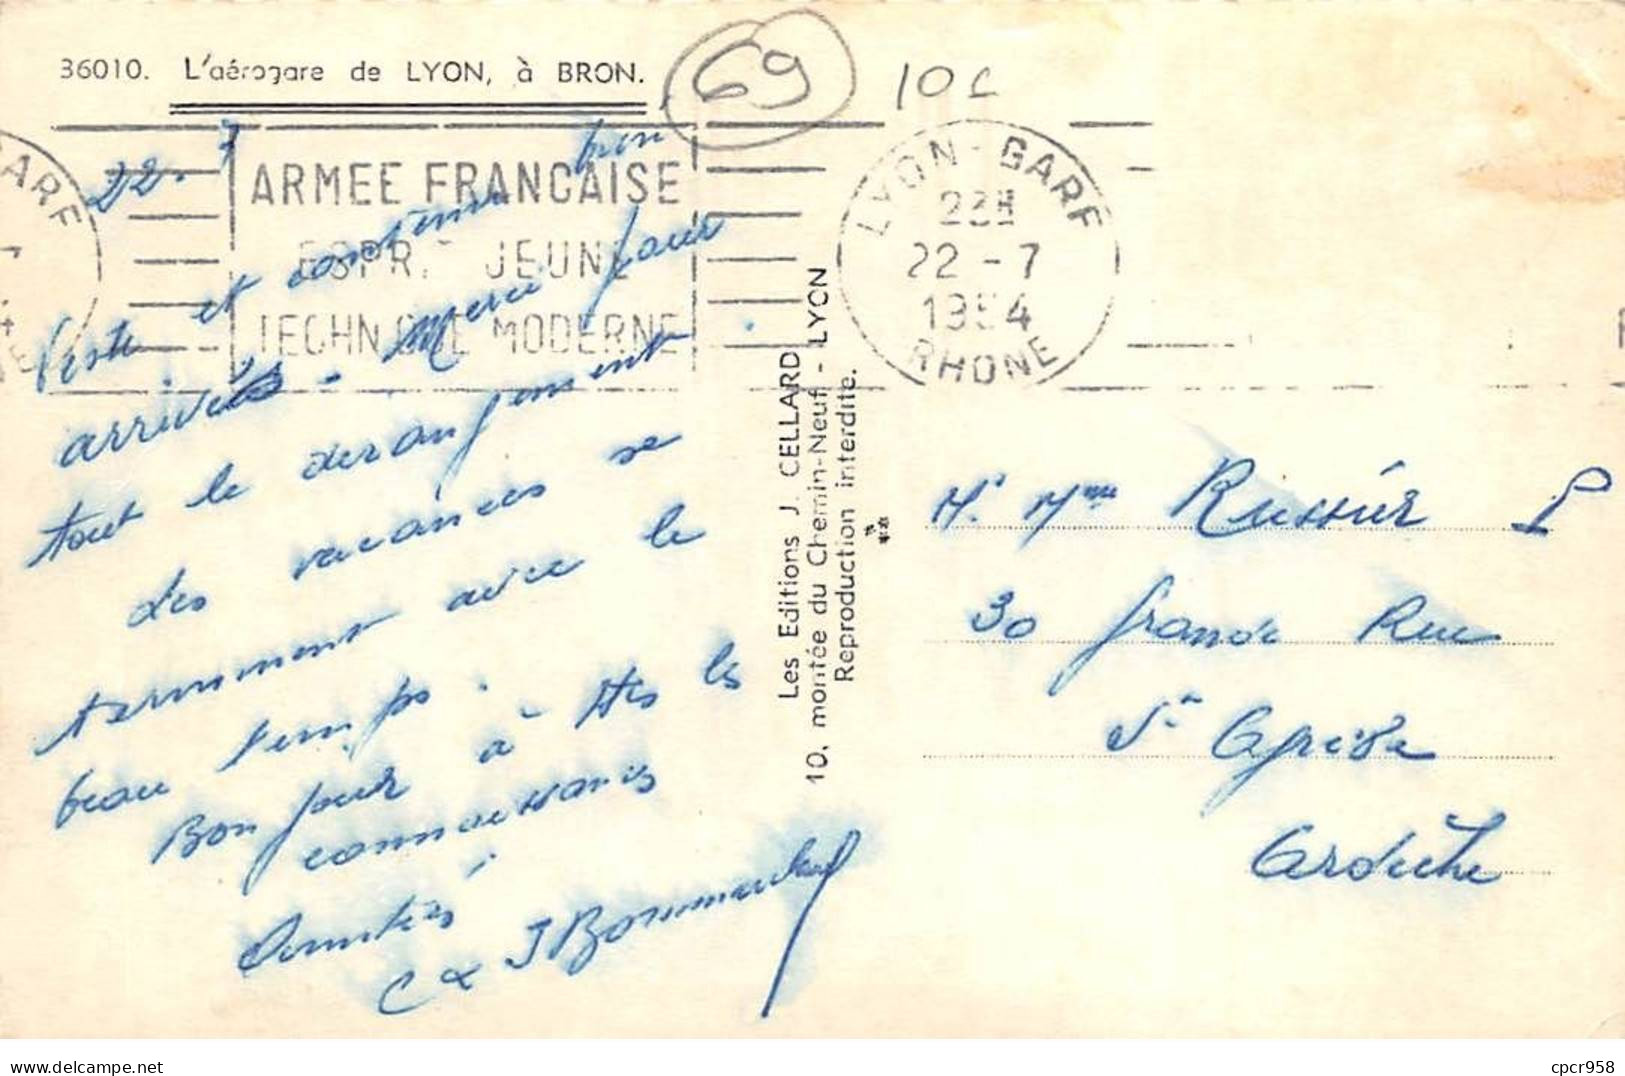 36010. L'aérogare de LYON, à BRON.
69
10c
ARMEE FRANCAISE
ESPRIT JEUNE
TECHNIQUE MODERNE
LYON-GARE
22-7
1954
RHONE
22. 7
Veste et costume bien
arrivés - Merci pour
tout le derangement.
Les vacances se
terminent avec le
beau temps.
Bonjour à ttes les
connaissances
Amitiés
C & J
Les Editions J. CELLARD
10, montée du Chemin-Neuf - LYON
Reproduction interdite.
Mr Mme
30 grande Rue
St Agrève
Ardèche
cpcr958